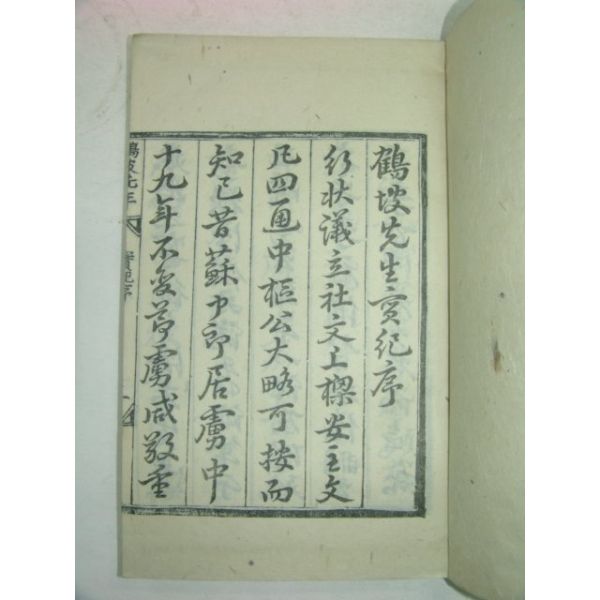 鶴坡先生實紀序
行狀議立社文上樑安主文
凡四通中樞公大略可按而
知已昔蘇中郎居虜中
十九年不変節虜咸敬重
實紀序